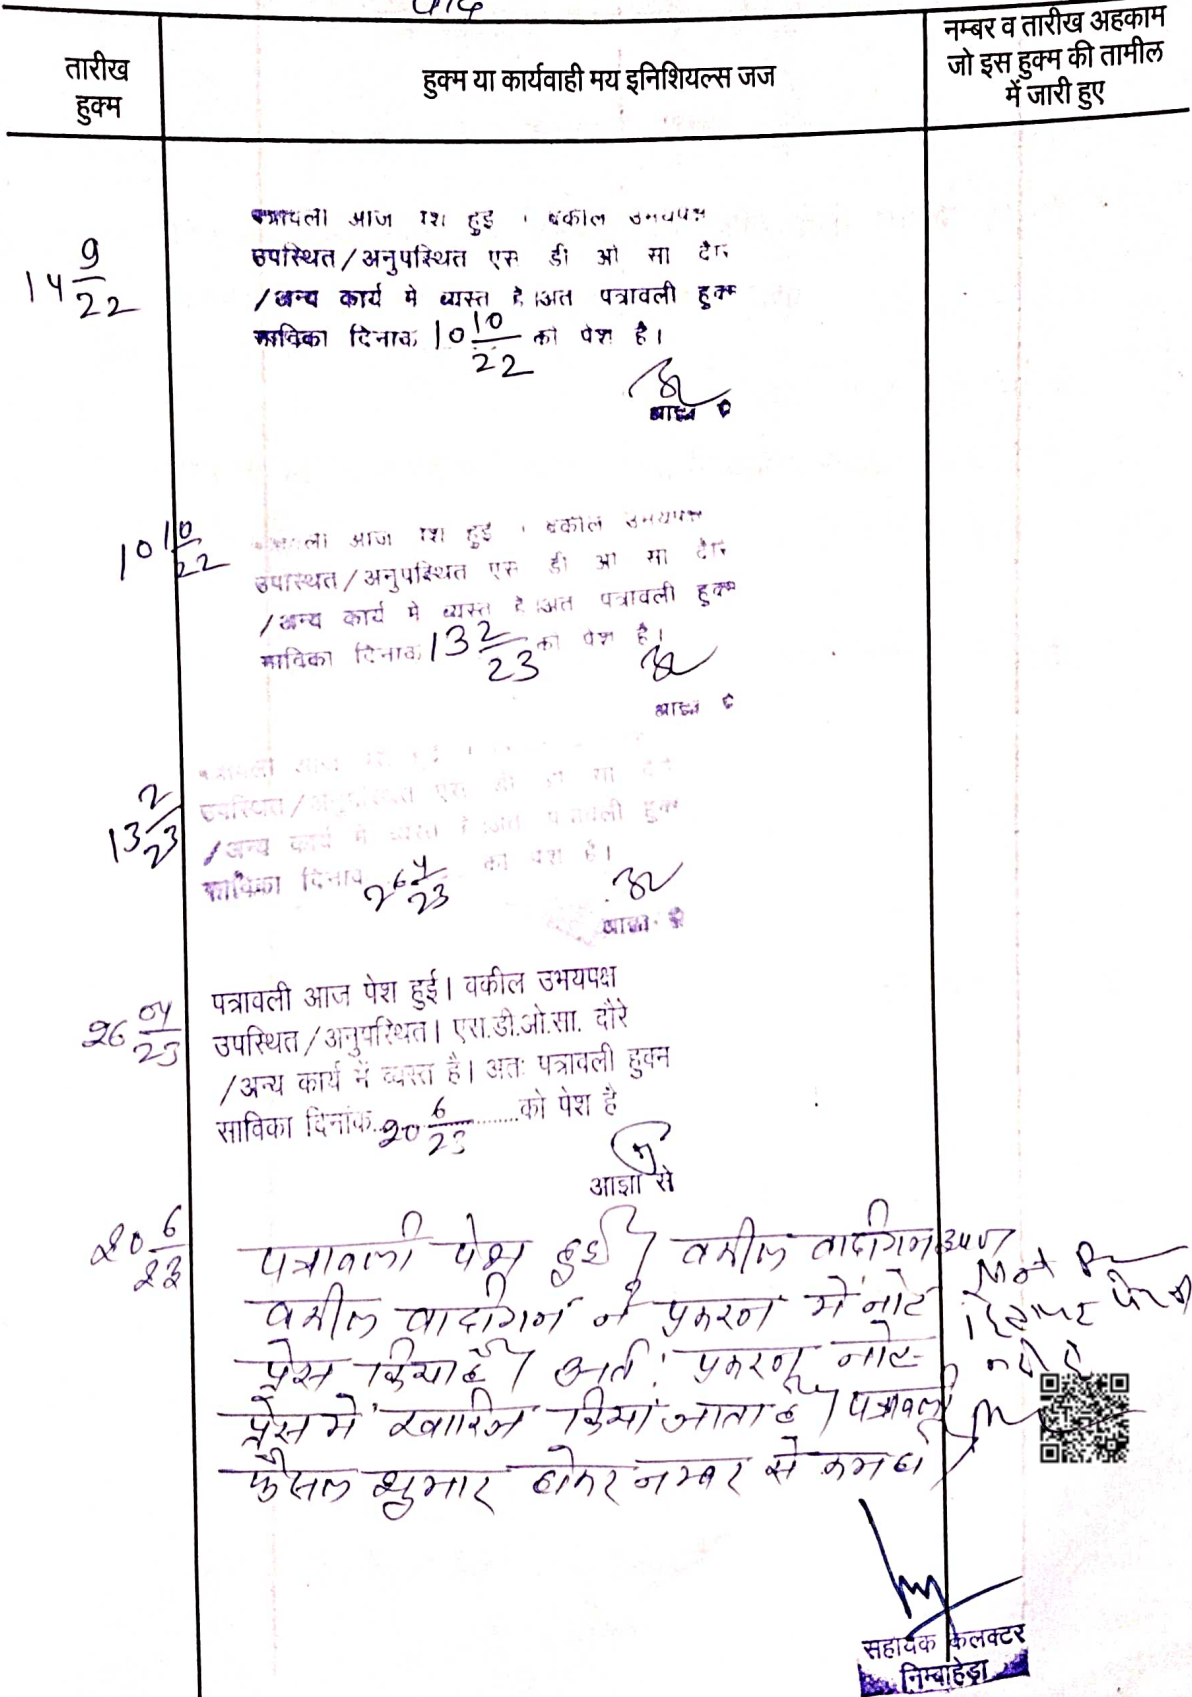 वाद
तारीख
हुक्म
हुक्म या कार्यवाही मय इनिशियल्स जज
नम्बर व तारीख अहकाम
जो इस हुक्म की तामील
में जारी हुए
14 9/22
पत्रावली आज पेश हुई । वकील उभयपक्ष
उपस्थित/अनुपस्थित एस डी ओ सा दौरे
/अन्य कार्य मे व्यस्त है ।अत पत्रावली हुक्म
साविका दिनाक 10 10/22 को पेश है।
10 10/22
पत्रावली आज पेश हुई । वकील उभयपक्ष
उपस्थित/अनुपस्थित एस डी ओ सा दौरे
/अन्य कार्य मे व्यस्त है ।अत पत्रावली हुक्म
साविका दिनाक 13 2/23 को पेश है।
13 2/23
पत्रावली आज पेश हुई ।
उपस्थित/अनुपस्थित एस डी ओ सा दौरे
/अन्य कार्य मे व्यस्त है ।अत पत्रावली हुक्म
साविका दिनाक 26 4/23 को पेश है।
26 04/23
पत्रावली आज पेश हुई। वकील उभयपक्ष
उपस्थित/अनुपस्थित। एस.डी.ओ.सा. दौरे
/अन्य कार्य में व्यस्त है। अतः पत्रावली हुक्म
साविका दिनांक..20 6/23.......को पेश है
आज्ञा से
20 6/23
पत्रावली पेश हुई। वकील वादीगण उप।
वकील वादीगन ने प्रकरन में नोट
प्रेस किया है। अतः प्रकरन नोट
प्रेस में खारिज किया जाता है। पत्रावली
फैसल शुमार होकर नम्बर से कम हो।
सहायक कलक्टर
निम्बाहेड़ा